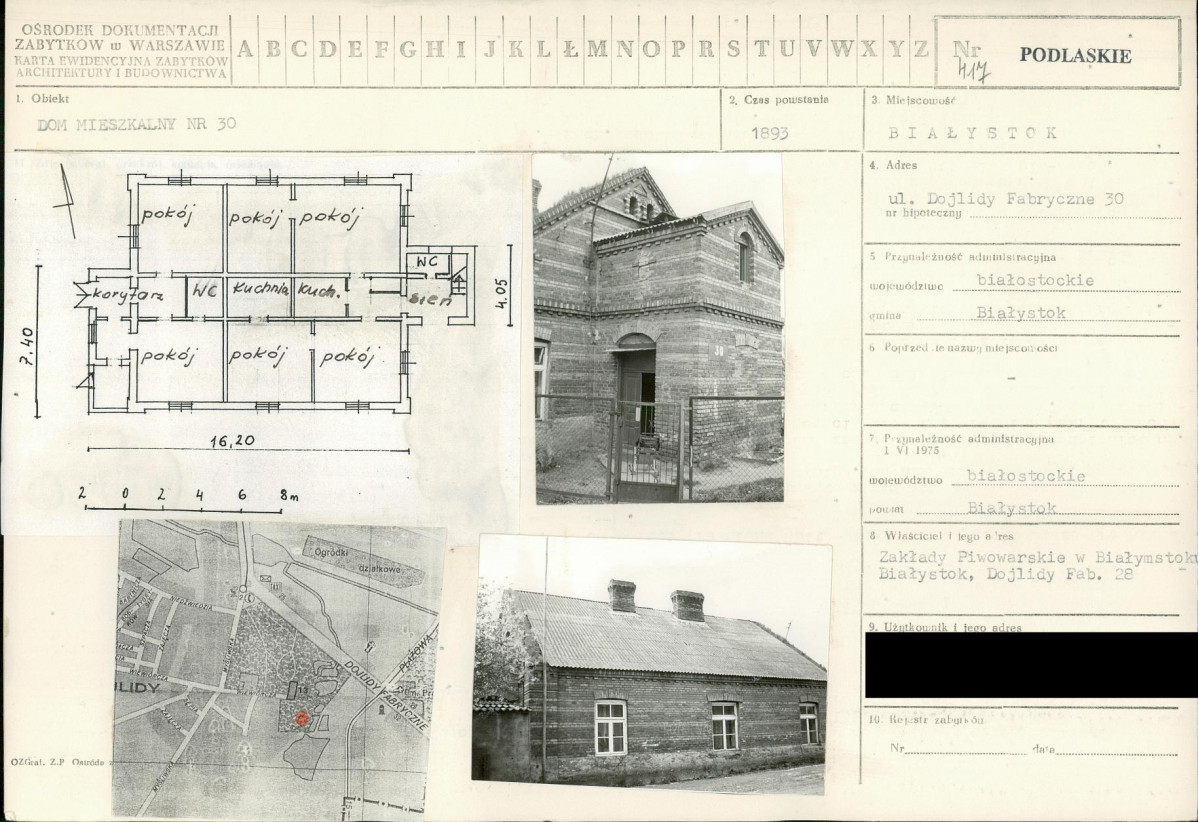 OŚRODEK DOKUMENTACJI
ZABYTKÓW w WARSZAWIE
KARTA EWIDENCYJNA ZABYTKÓW
ARCHITEKTURY I BUDOWNICTWA
A B C D E F G H I J K L Ł M N O P R S T U V W X Y Z
Nr
417
PODLASKIE
1. Obiekt
DOM MIESZKALNY NR 30
2. Czas powstania
1893
3. Miejscowość
BIAŁYSTOK
4. Adres
ul. Dojlidy Fabryczne 30
nr hipoteczny
5 Przynależność administracyjna
województwo białostockie
gmina Białystok
6 Poprzednie nazwy miejscowości
-
7. Przynależność administracyjna
1. VI 1975
województwo białostockie
powiat Białystok
8 Właściciel i jego adres
Zakłady Piwowarskie w Białymstoku
Białystok, Dojlidy Fab. 28
9. Użytkownik i jego adres
10. Rejestr zabytków
Nr data
pokój pokój pokój
WC
korytarz WC kuchnia kuch. sień
pokój pokój pokój
7.40
4.05
16,20
2 0 2 4 6 8m
30
Ogródki
działkowe
NIEDŹWIEDZIA
WIEWIÓRCZA
DOJLIDY FABRYCZNE
PLAŻOWA
MYŚLIWSKA
13
OZGraf. Z.P Ostróda